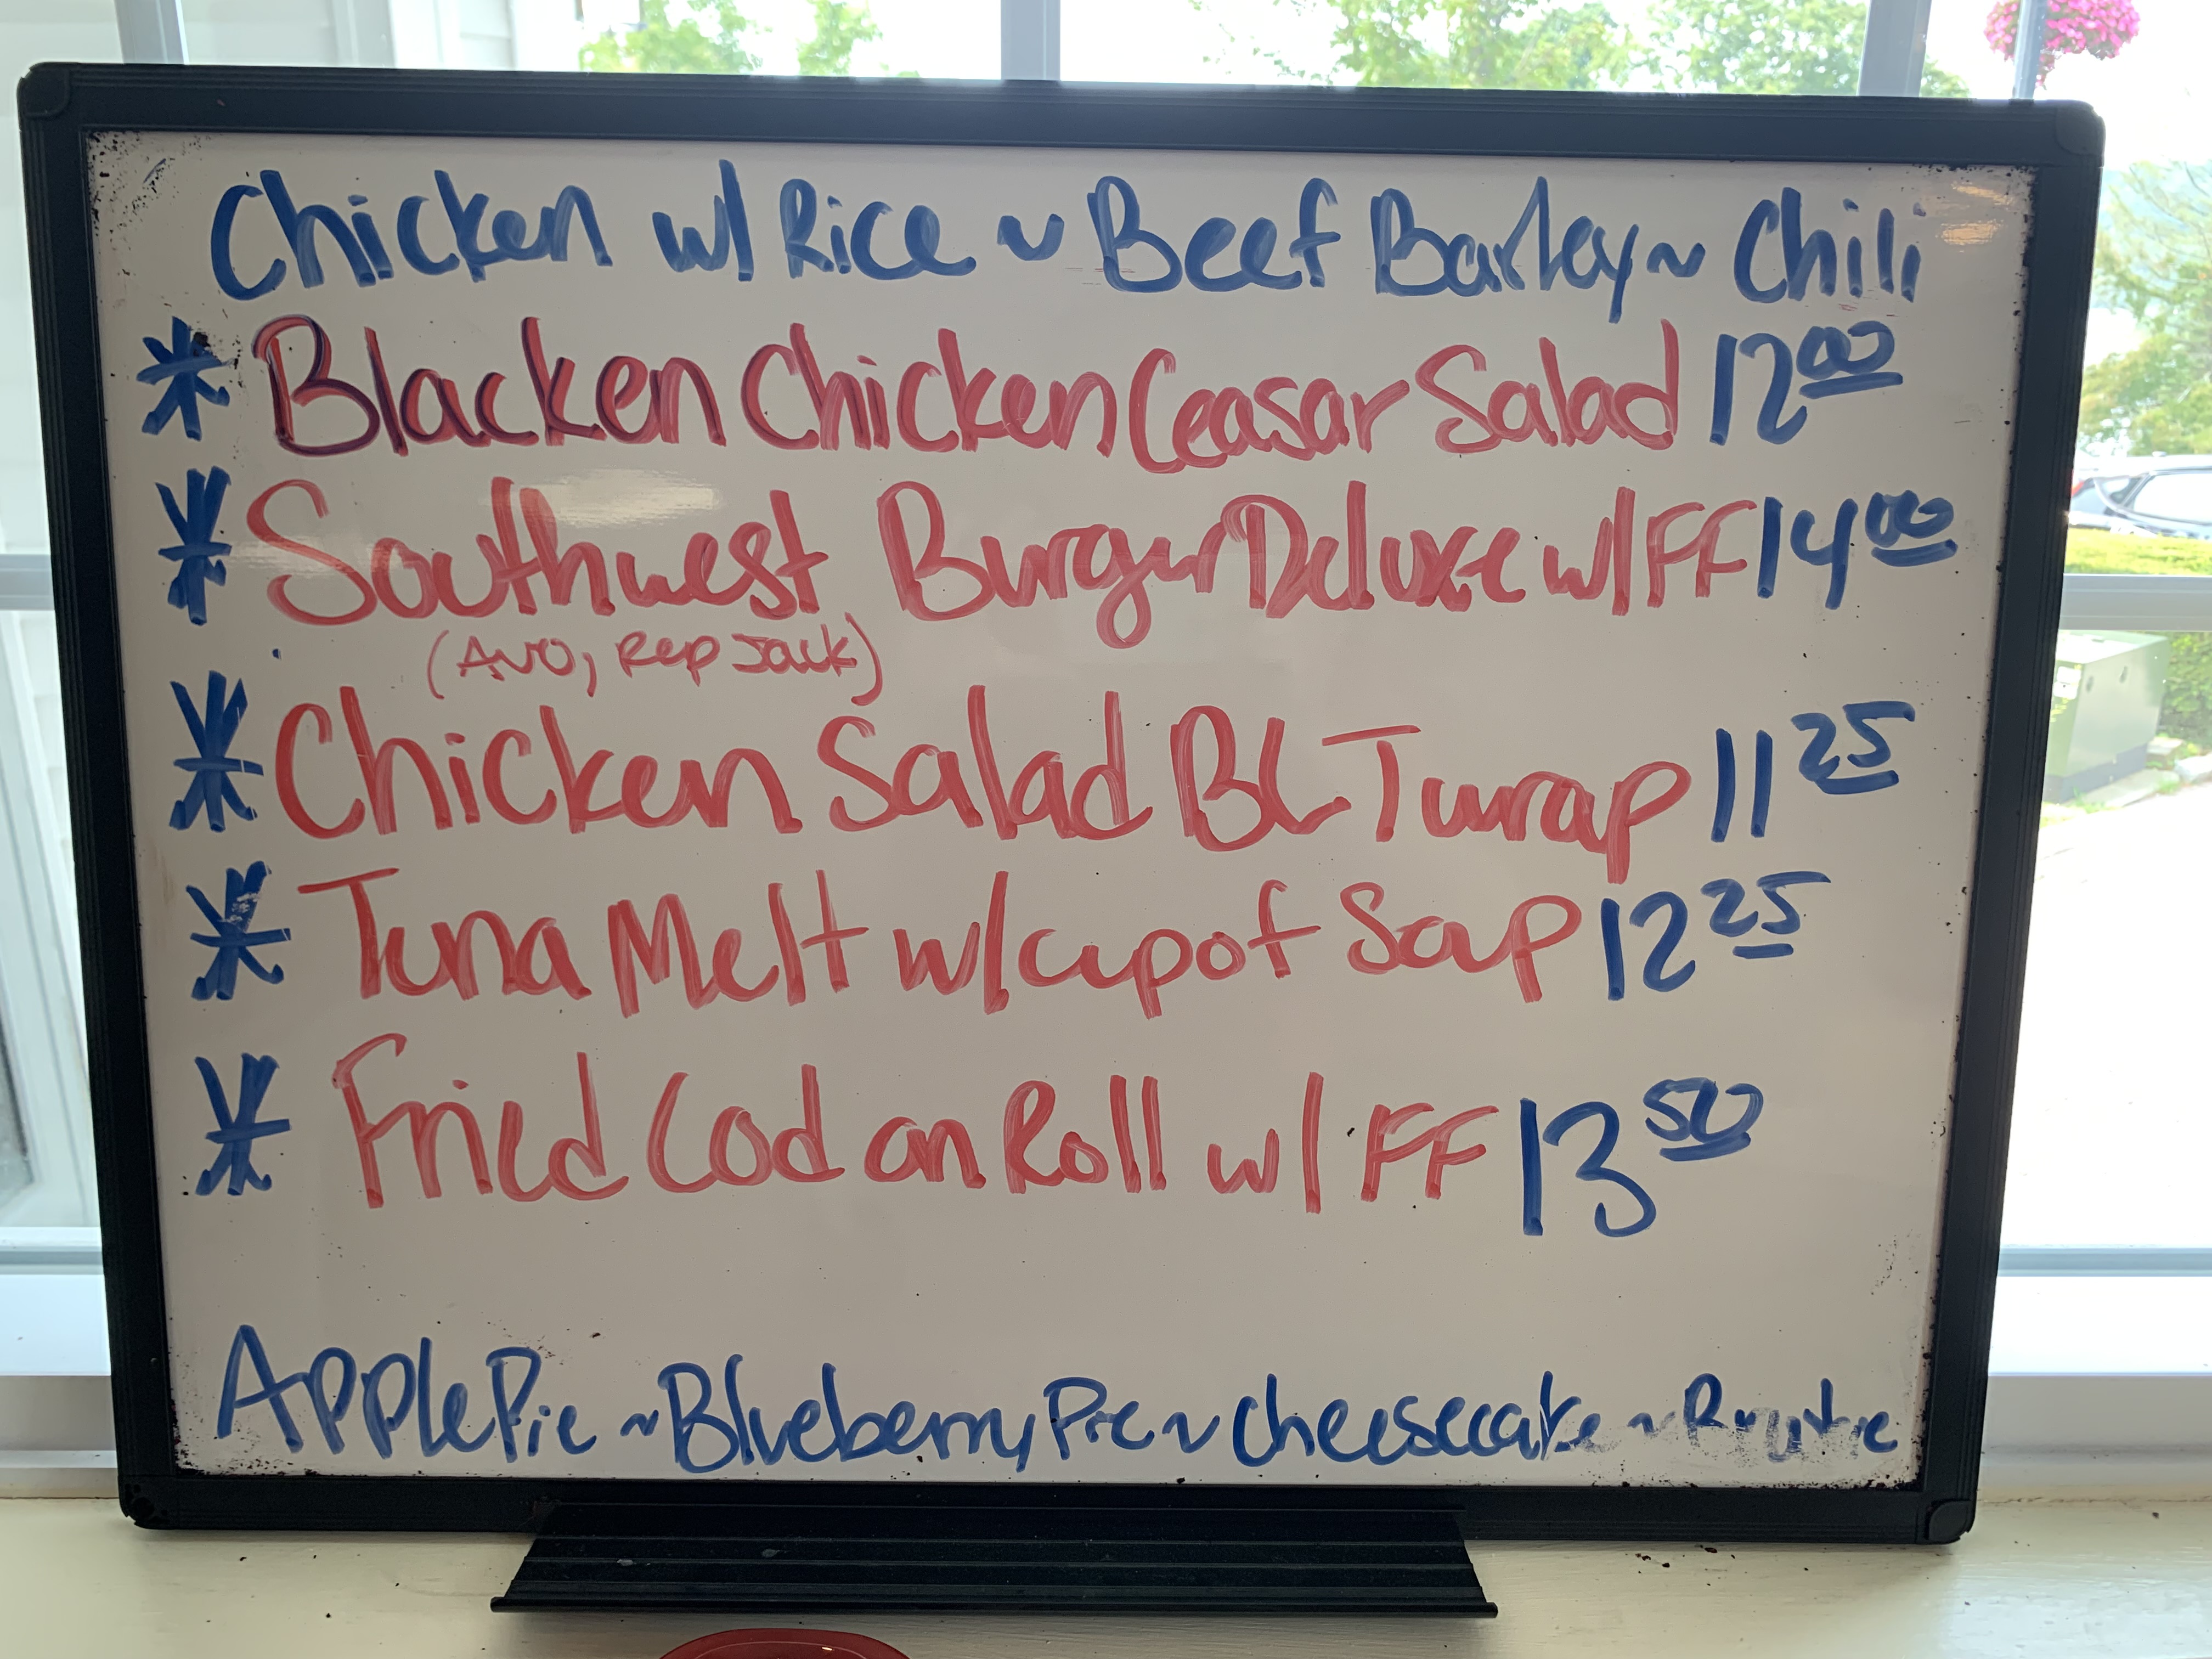 Chicken w/ Rice ~ Beef Barley ~ Chili
* Blacken Chicken Ceasar Salad 12 00
* Southwest Burger Deluxe w/ FF 14 00
(Avo, Pep Jack)
* Chicken Salad BLT wrap 11 25
* Tuna Melt w/ cup of Soup 12 25
* Fried Cod on Roll w/ FF 13 50
Apple Pie ~ Blueberry Pie ~ Cheesecake ~